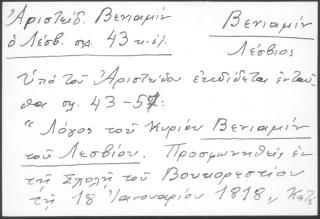 Ἀριστείδ. Βενιαμίν
ὁ Λέσβ. σελ. 43 κ.ἑξ.
Βενιαμίν
Λέσβιος
Ὑπὸ τοῦ Ἀριστείδου ἐκδίδεται ἐνταῦ-
θα σελ. 43-57:
"Λόγος τοῦ Κυρίου Βενιαμίν
τοῦ Λεσβίου. Προσφωνηθεὶς ἐν
τῇ Σχολῇ τοῦ Βουκορεστίου
τῇ 18 Ἰανουαρίου 1818„